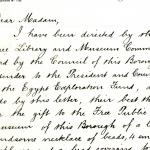 Dear Madam,
I have been directed by the
Free Library and Museum Comm
ed by the Council of this Boro
under to the President and Coun
the Egypt Exploration Fund, a
ade by this letter, their best th
r the gift to the Free Public
useum of this Borough of a
ndsome necklace of beads, 4 am